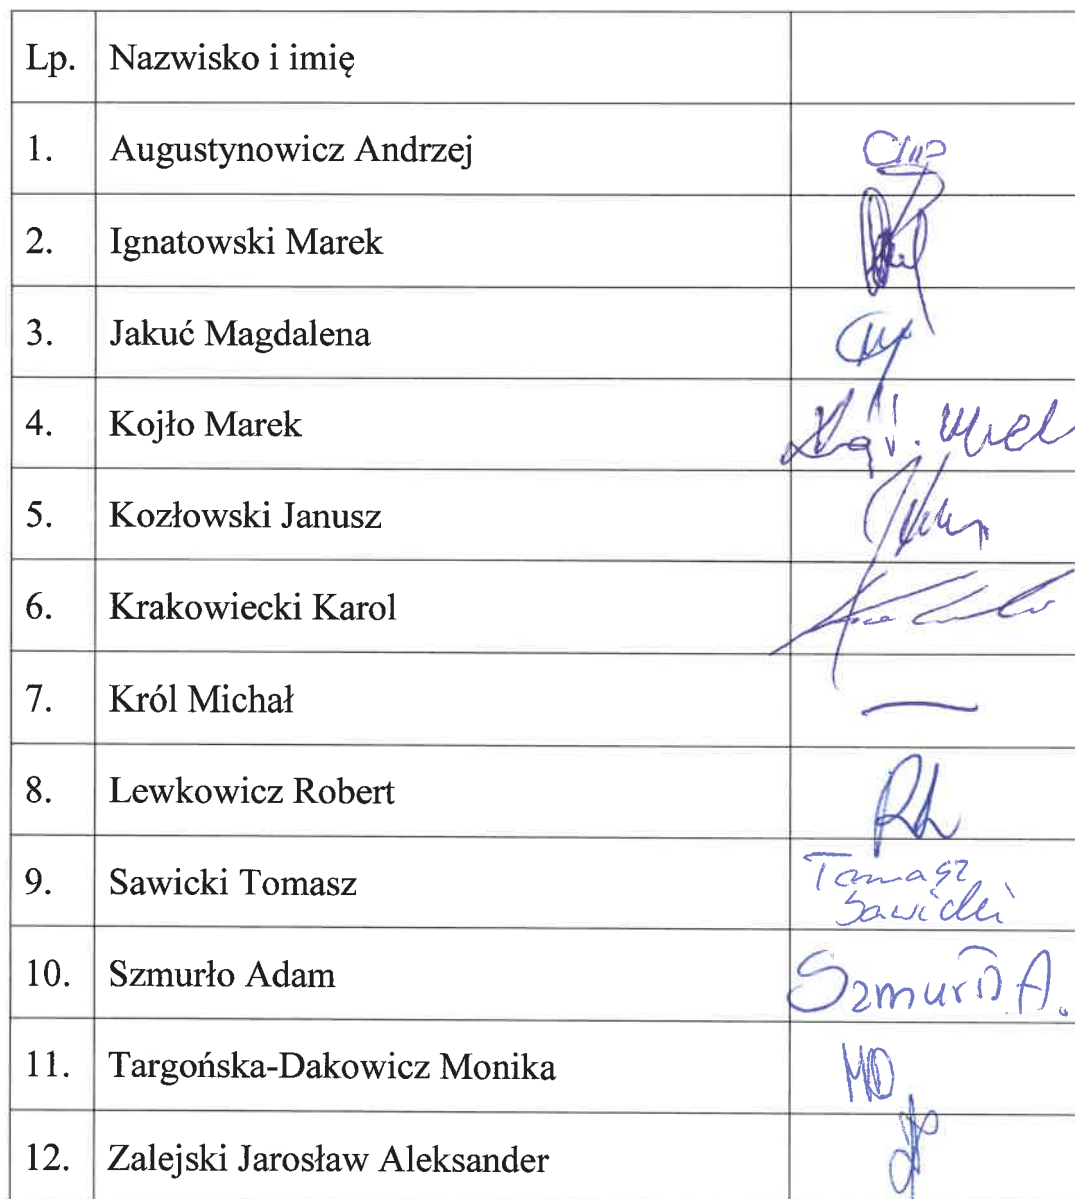 Lp. Nazwisko i imię
1. Augustynowicz Andrzej
2. Ignatowski Marek
3. Jakuć Magdalena
4. Kojło Marek
5. Kozłowski Janusz
6. Krakowiecki Karol
7. Król Michał
8. Lewkowicz Robert
9. Sawicki Tomasz Tomasz
Sawicki
10. Szmurło Adam Szmurło A.
11. Targońska-Dakowicz Monika MD
12. Zalejski Jarosław Aleksander